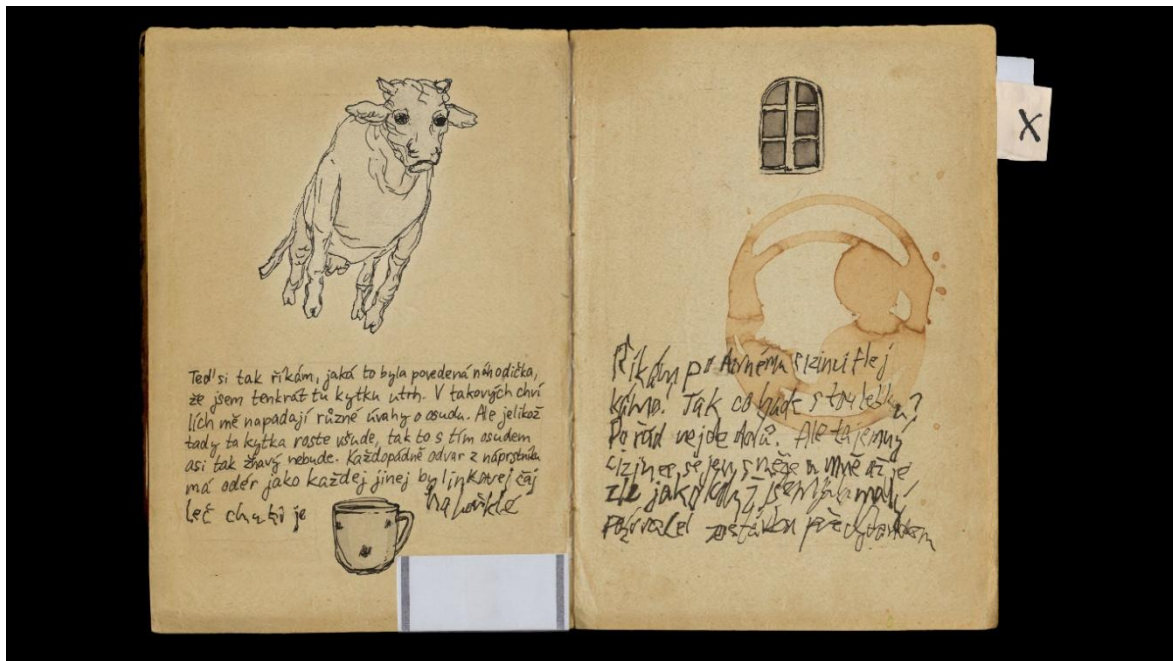 Teď si tak říkám, jaká to byla povedená náhodička,
že jsem tenkrát tu kytku utrh. V takových chví
lích mě napadají různé úvahy o osudu. Ale jelikož
tady ta kytka roste všude, tak to s tím osudem
asi tak žhavý nebude. Každopádně odvar z náprstníku
má odér jako každej jinej bylinkovej čaj
leč je nahořklé
X
Říkám Hej
kámo. Tak co bude s tou
Pořád nejde dolů. Ale tajemný
cizinec se jen a mně až je
zle jako když jsem malý